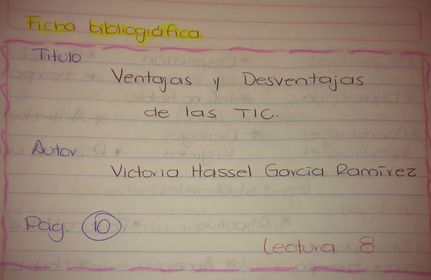 Ficha bibliográfica
Titulo
Ventajas y Desventajas
de las TIC.
Autor
Victoria Hassel García Ramírez
Pág. 10
Lectura 8